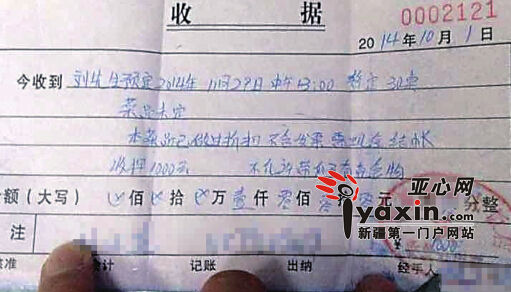 收 据
0002121
2014年10月1日
今收到 刘先生预定2014年11月29日中午13:00 暂定 30桌
菜品未定
本菜品已做过折扣 不含发票 需现金结帐
收押1000元 不允许带
金额（大写） 佰 拾 万 壹仟 零佰 零 元 分整
亚心网
iyaxin.com
新疆第一门户网站
¥1000
注
核准 会计 记账 出纳 经手人